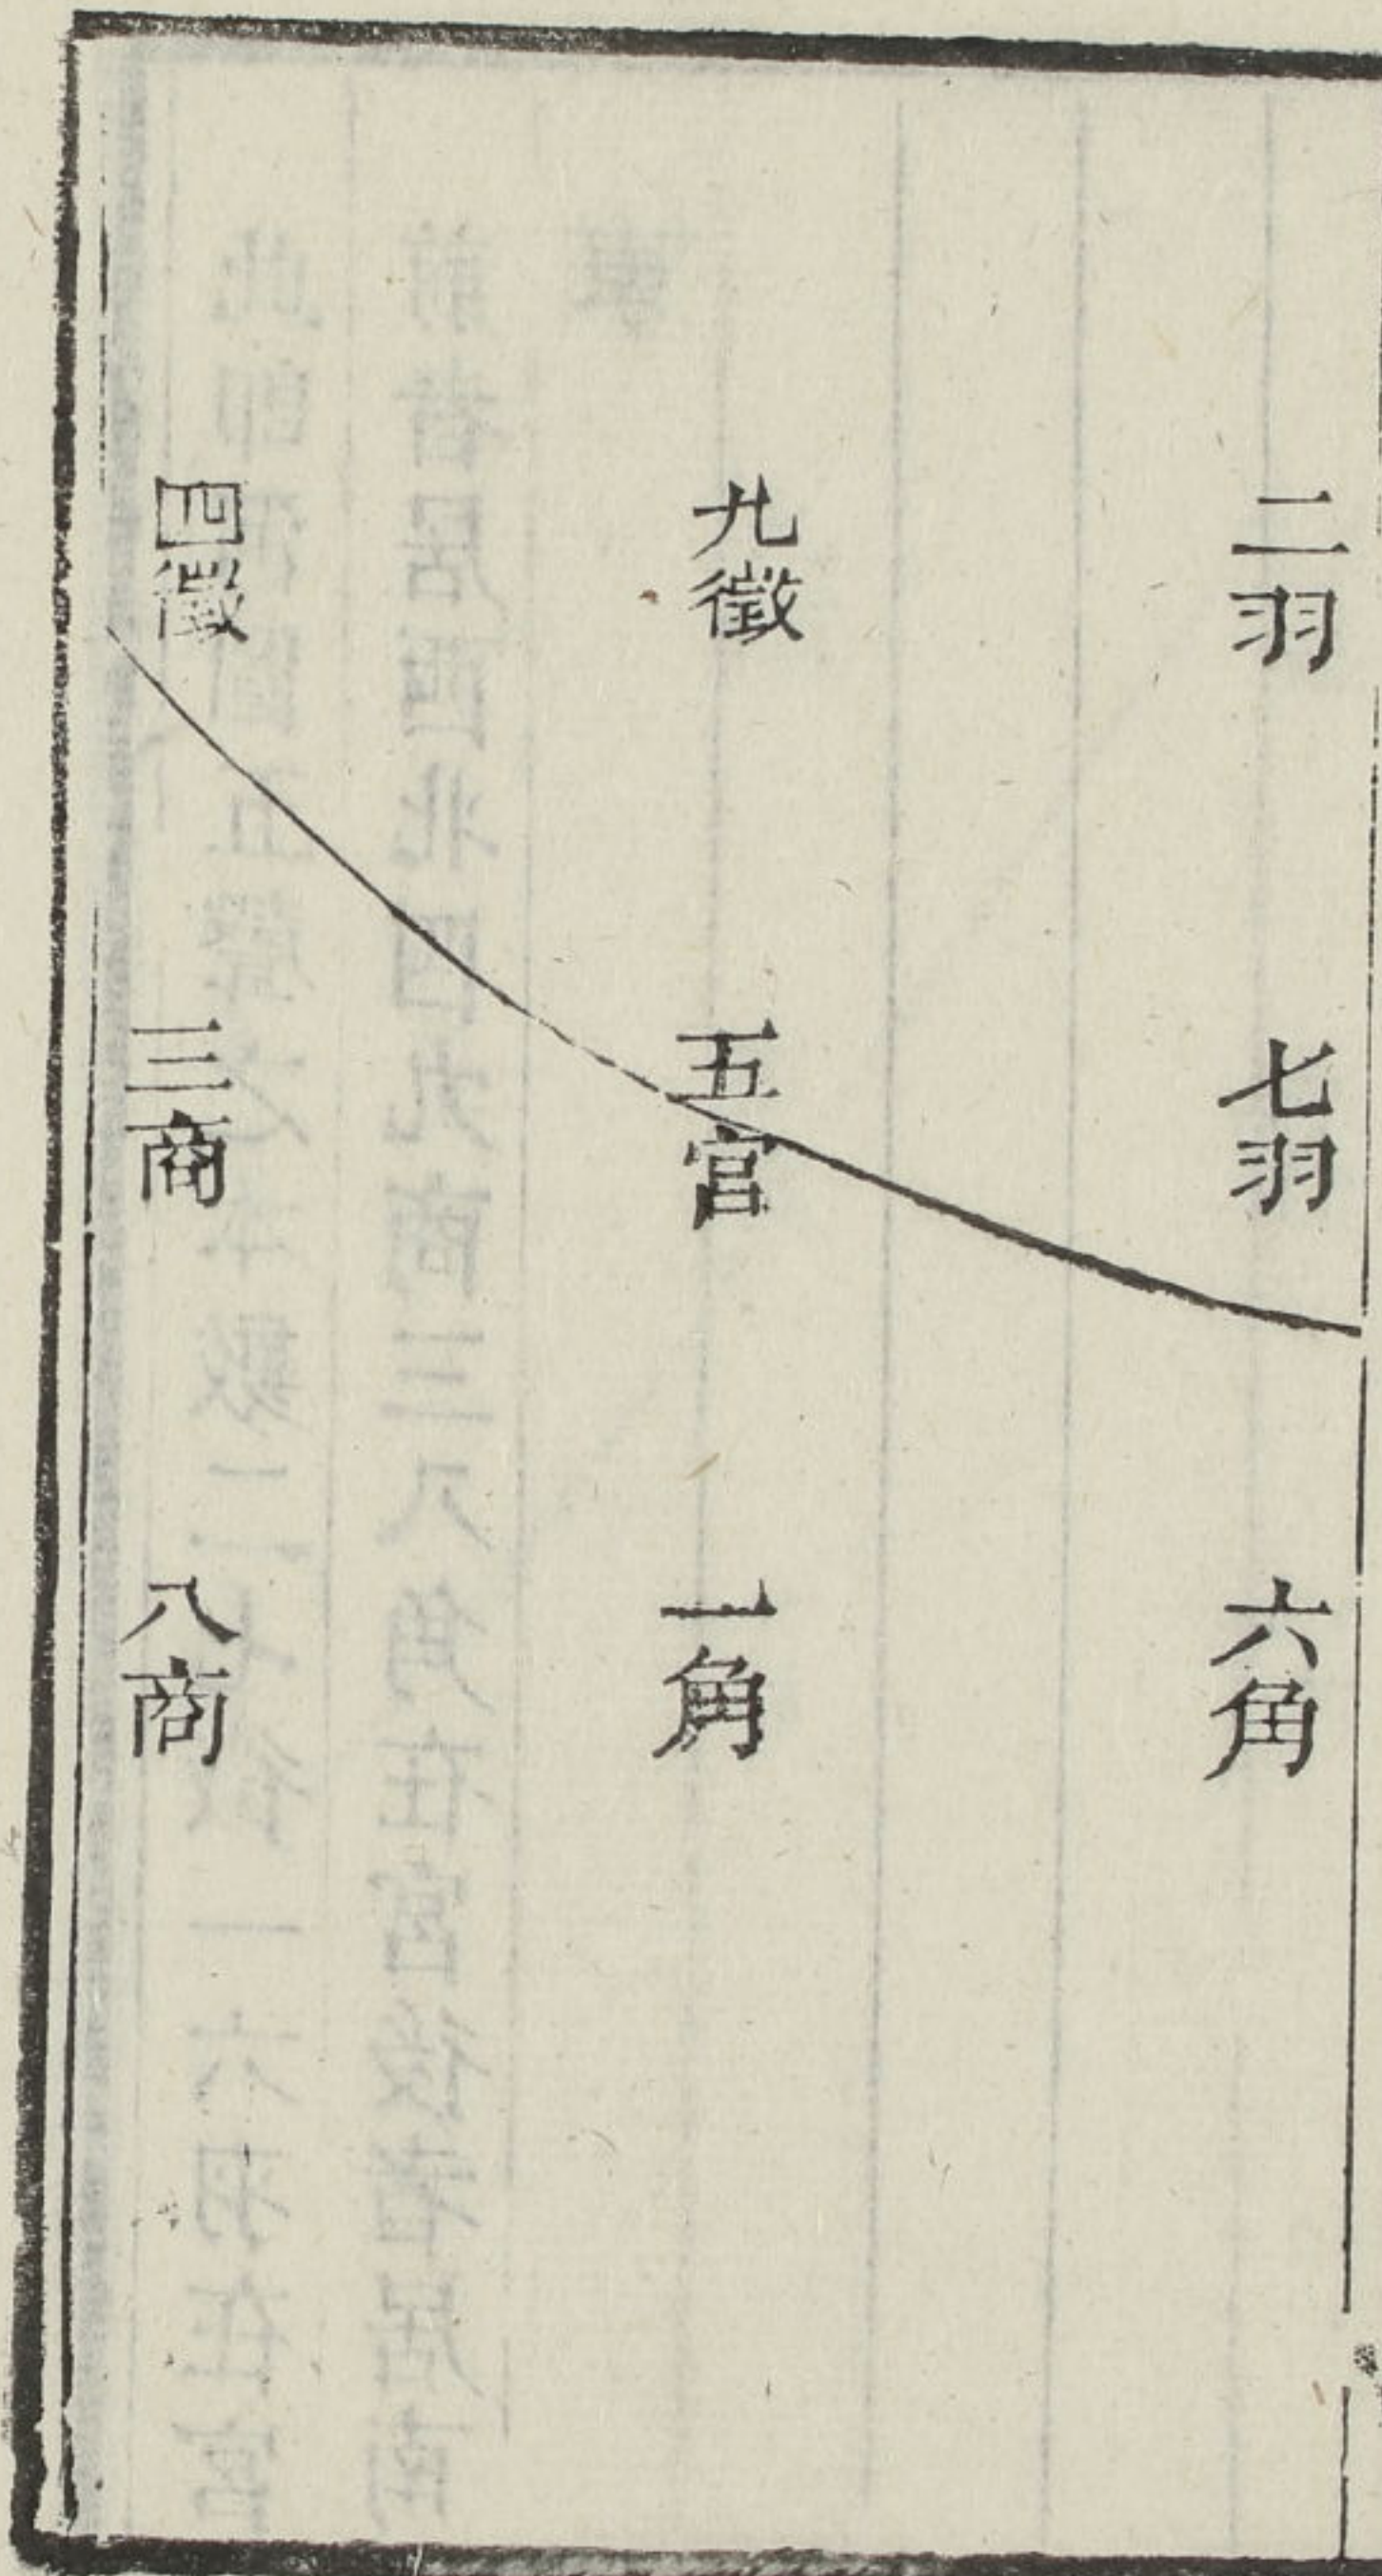 二羽
七羽
六角
九徵
五宮
一角
四徵
三商
八商